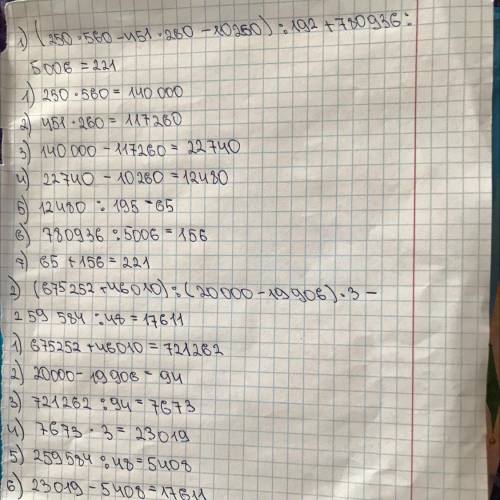 1) (250·560-451·260-10260):192+780936:
5006=221
1) 250·560=140000
2) 451·260=117260
3) 140000-117260=22740
4) 22740-10260=12480
5) 12480:195=65
6) 780936:5006=156
7) 65+156=221
2) (675252+46010):(20000-19906)·3-
259584:48=17611
1) 675252+46010=721262
2) 20000-19906=94
3) 721262:94=7673
4) 7673·3=23019
5) 259584:48=5408
6) 23019-5408=17611